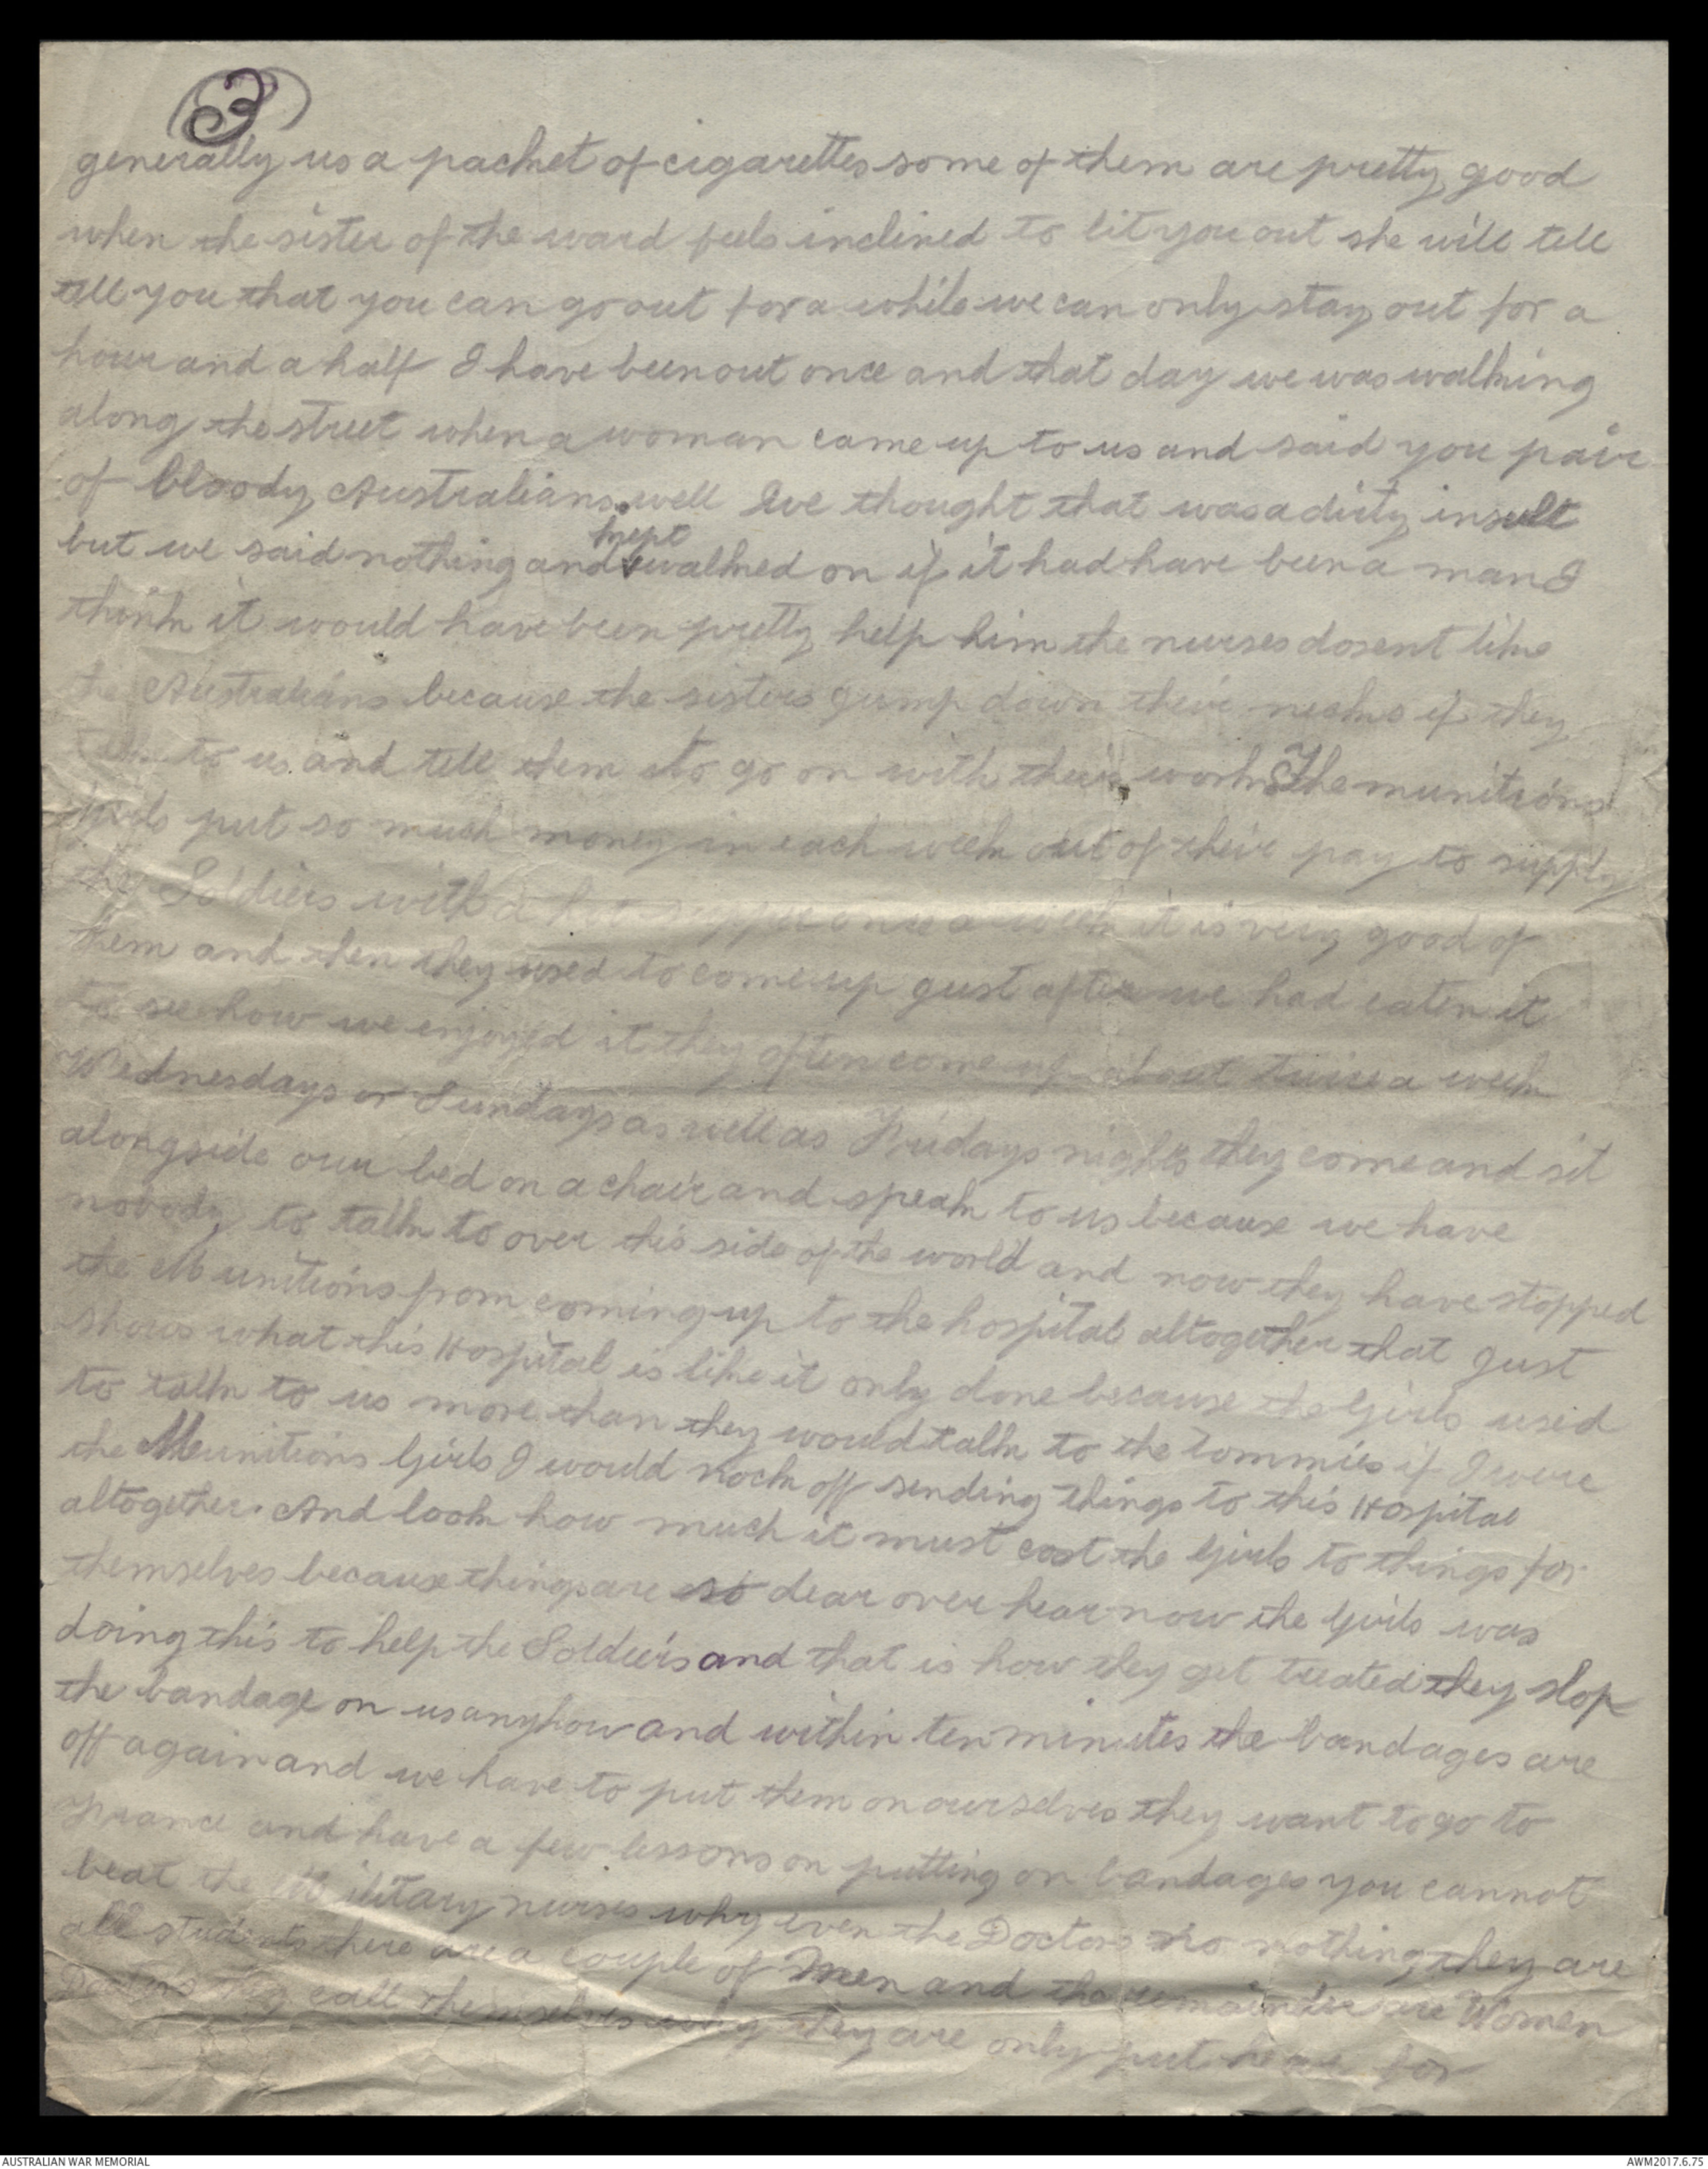 3
generally us a packet of cigarettes some of them are pretty good
when the sister of the ward feels inclined to lit you out she will tell
tell you that you can go out for a while we can only stay out for a
hour and a half I have been out once and that day we was walking
along the street when a woman came up to us and said you pair
of bloody Australians. well we thought that was a dirty insult
but we said nothing and kept walked on if it had have been a man I
think it would have been pretty help him the nurses dosent like
the Australians because the sisters jump down their necks if they
talk to us and tell them to go on with their work The munitions
girls put so much money in each week out of their pay to supply
the Soldiers with a hot supper once a week it is very good of
them and then they used to come up just after we had eaten it
to see how we enjoyed it they often come up about twice a week
Wednesdays or Sundays as well as Fridays nights they come and sit
alongside our bed on a chair and speak to us because we have
nobody to talk to over this side of the world and now they have stopped
the Munitions from coming up to the hospital altogether that just
shows what this Hospital is like it only done because the Girls used
to talk to us more than they would talk to the Tommies if I were
the Munitions Girls I would nock off sending things to this Hospital
altogether. And look how much it must cost the Girls to things for
themselves because things are so dear over hear now the Girls was
doing this to help the Soldiers and that is how they get treated they slop
the bandage on us anyhow and within ten minutes the bandages are
off again and we have to put them on ourselves they want to go to
France and have a few lessons on putting on bandages you cannot
beat the Military nurses why even the Doctors no nothing they are
all students there are a couple of Men and the remainder are Women
Doctors they call themselves why they are only put here for
AUSTRALIAN WAR MEMORIAL
AWM2017.6.75